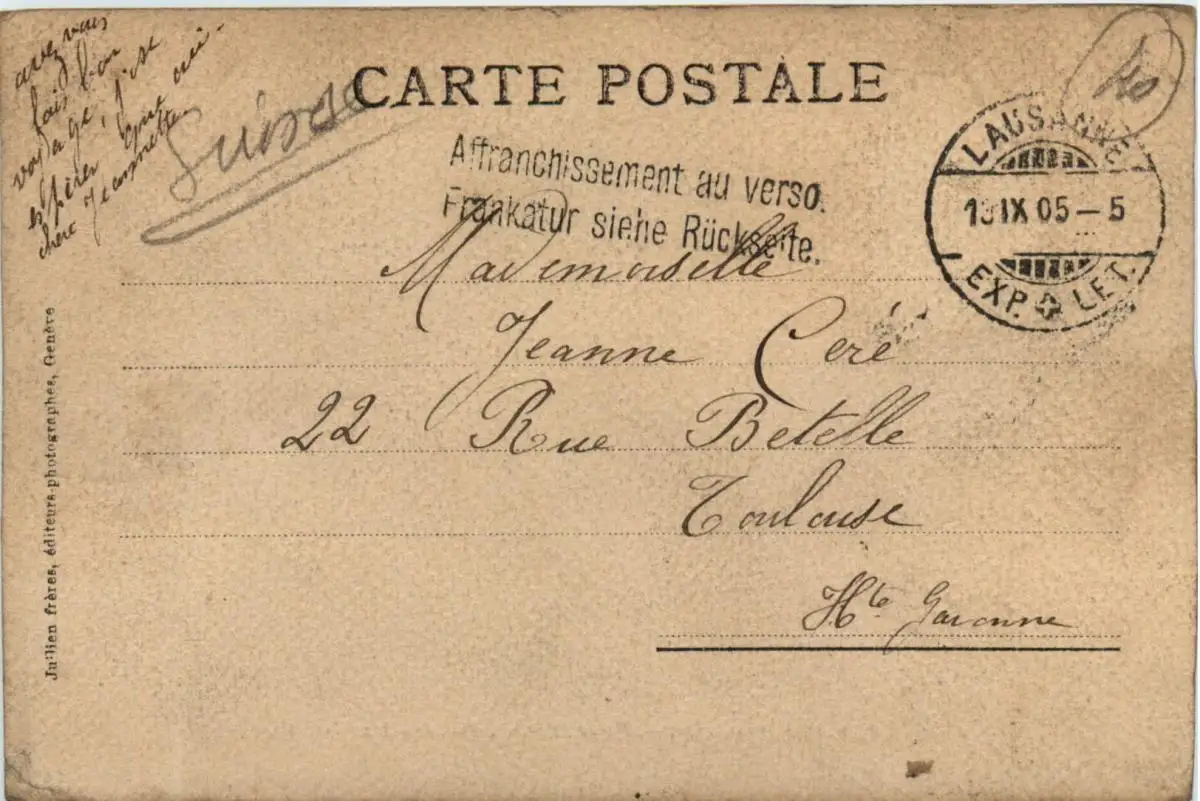 avez vous
fais bon
voyage, j'ose
espérer que oui
chère Jeannette
Suisse
CARTE POSTALE
40
Affranchissement au verso.
Frankatur siehe Rückseite.
LAUSANNE
IX 05 – 5
EXP. LET.
Mademoiselle
Jeanne Ceré
22 Rue Betelle
Toulouse
Hte Garonne
Jullien frères, éditeurs-photographes, Genève